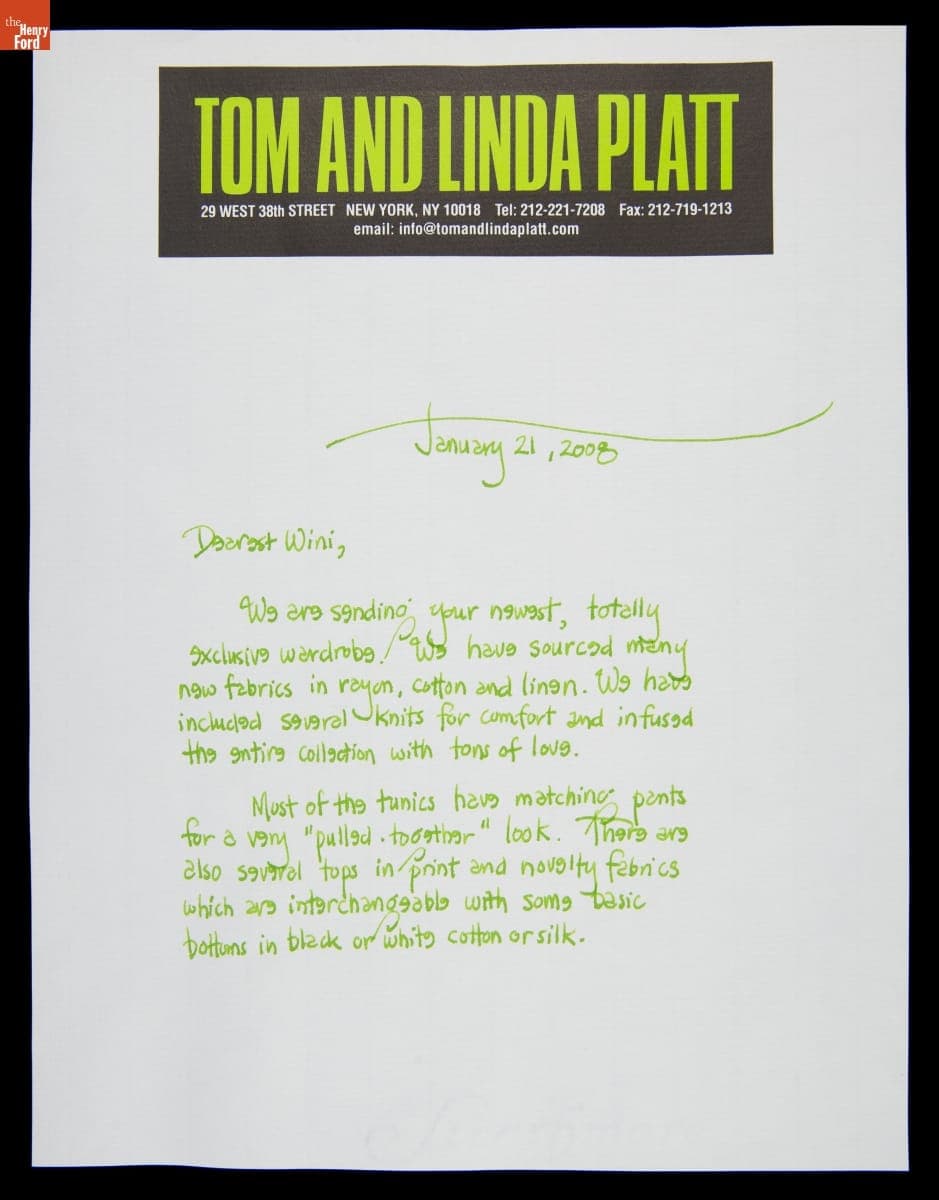 the
Henry
Ford
TOM AND LINDA PLATT
29 WEST 38th STREET NEW YORK, NY 10018 Tel: 212-221-7208 Fax: 212-719-1213
email: info@tomandlindaplatt.com
January 21, 2008
Dearest Wini,
We are sending your newest, totally
exclusive wardrobe! We have sourced many
new fabrics in rayon, cotton and linen. We have
included several knits for comfort and infused
the entire collection with tons of love.
Most of the tunics have matching pants
for a very "pulled-together" look. There are
also several tops in print and novelty fabrics
which are interchangeable with some basic
bottoms in black or white cotton or silk.